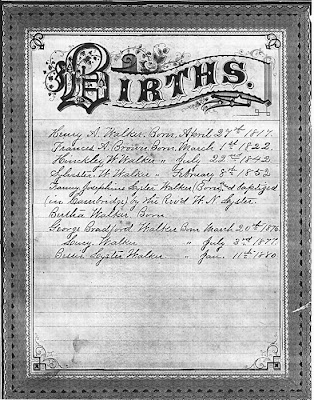 BIRTHS.
Henry A. Walker. Born, April 27th 1817.
Frances A. Brown Born, March 1st 1822.
Hinckley W. Walker " July 22nd 1842
Sylvester W. Walker " February 8th 1852
Fanny Josephine Lyster Walker (Born, & baptized
(in Bainbridge) by the Rev'd W. N. Lyster.
Bertha Walker Born
George Bradford Walker Born March 20th 1876
Walker " July 3rd 1877.
Lyster Walker " Jan. 11th 1880